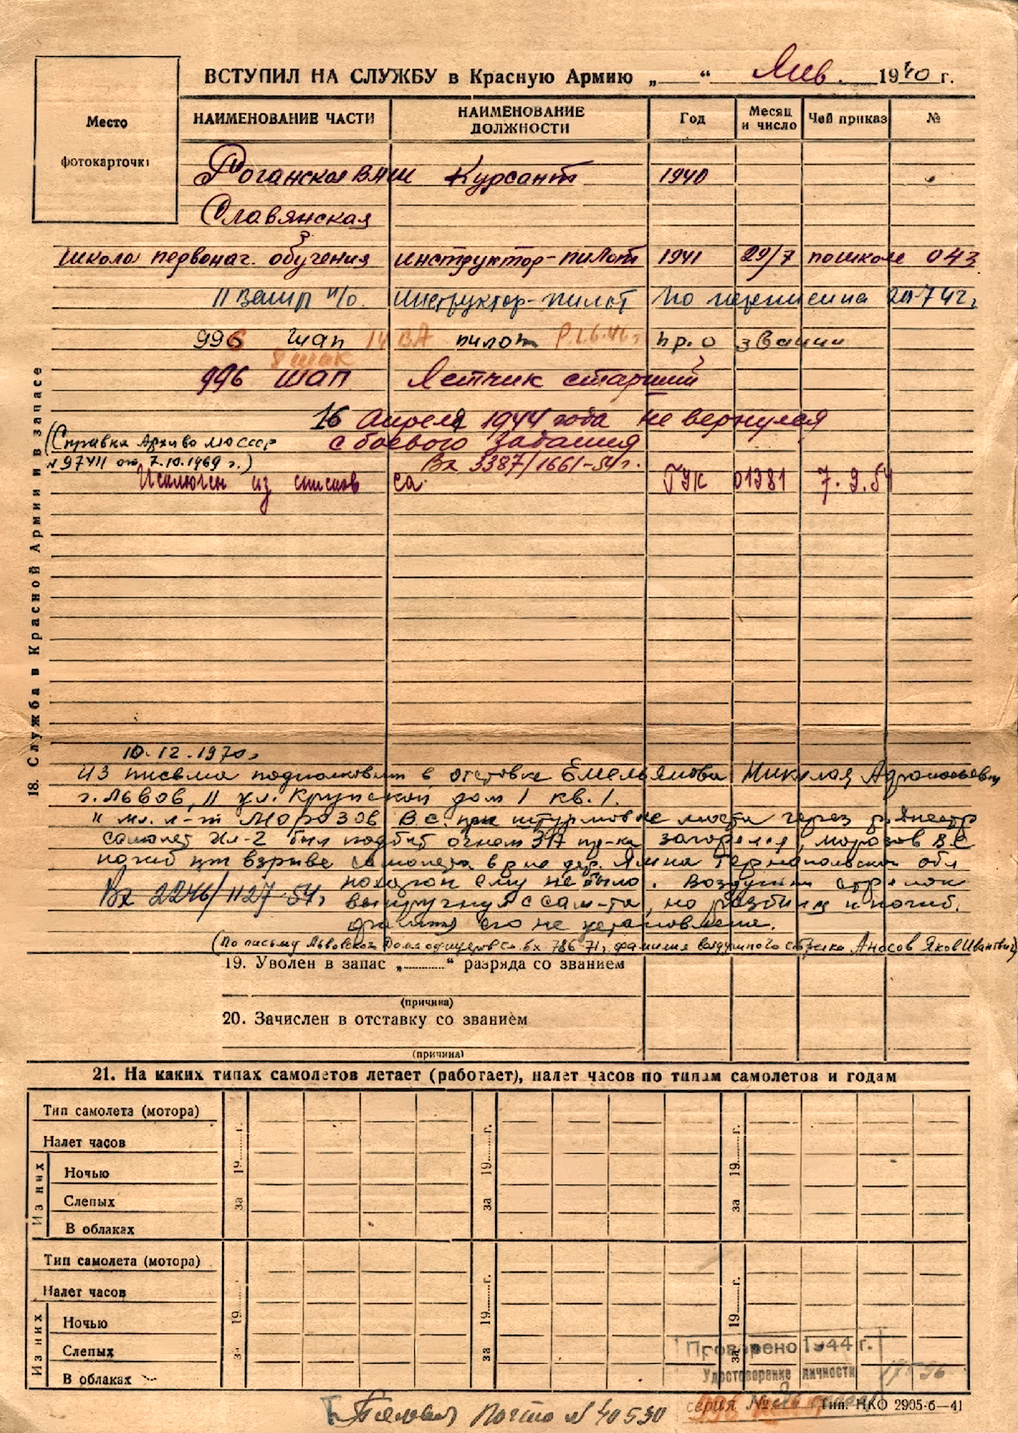 ВСТУПИЛ НА СЛУЖБУ в Красную Армию „ “ Янв. 1940 г.
Место
фотокарточки
НАИМЕНОВАНИЕ ЧАСТИ
НАИМЕНОВАНИЕ ДОЛЖНОСТИ
Год
Месяц и число
Чей приказ
№
Роганская ВАШ Курсант 1940
Славянская
школа первонач. обучения инструктор-пилот 1941 29/7 по школе 043
инструктор-пилот по переписи на
996 шап 14 ВА пилот пр. о звании
8 шак
996 шап Летчик старший
16 Апреля 1944 года не вернулся
(Справка Архива МО СССР с боевого задания
№ 97411 от 7.10.1969 г.) Вх 3387/1661-54г.
Исключен из списков са. ГУК 01381 7.9.54
18. Служба в Красной Армии и в запасе
10.12.1970г.
Из письма подполковника в отставке Емельянова Николая
г. Львов, 11 ул. Крупской дом 1 кв. 1.
" мл. л-т Морозов В.С. при штурмовке моста через р. Днестр
самолет Ил-2 был подбит огнем загорелся, Морозов В.С.
погиб при взрыве самолета в р-не дер. Тернопольской обл
похорон ему не было. Воздушный стрелок
Вх 2246/1127-54г. выпрыгнул с сам-та, но разбился и погиб.
фамилия его не установлена.
(По письму Львовского Дома офицеров вх 786-71г. фамилия воздушного стрелка Аносов Яков Иванович)
19. Уволен в запас „..........“ разряда со званием
(причина)
20. Зачислен в отставку со званием
(причина)
21. На каких типах самолетов летает (работает), налет часов по типам самолетов и годам
Тип самолета (мотора)
Налет часов
Из них
Ночью
Слепых
В облаках
за 19......г.
за 19......г.
за 19......г.
Тип самолета (мотора)
Налет часов
Из них
Ночью
Слепых
В облаках
за 19......г.
за 19......г.
за 19......г.
Проверено 1944 г.
Удостоверение личности
серия №
Тип. НКО 2905-б—41
Почто № 40530